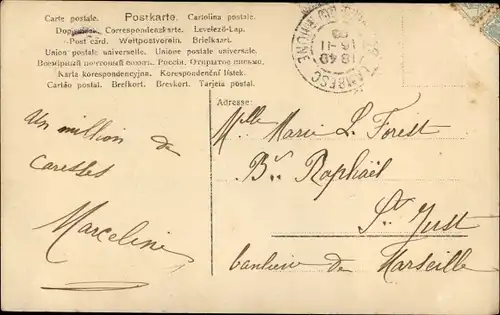 Carte postale. Postkarte. Cartolina postale.
Dopisnice. Correspondenzkarte. Levelező-Lap.
Post card. Weltpostverein. Briefkaart.
Union postale universelle. Unione postale universale.
Всемірный почтовый союзъ. Россія. Открытое письмо.
Karta korespondencyjna. Korespondenční lístek.
Cartão postal. Brefkort. Brevkort. Tarjeta postal.
18 40
16-11
09
Adresse:
Mlle Marie L. Forest
Bd Raphaël
St Just
banlieue de Marseille
Un million de
Caresses
Marceline